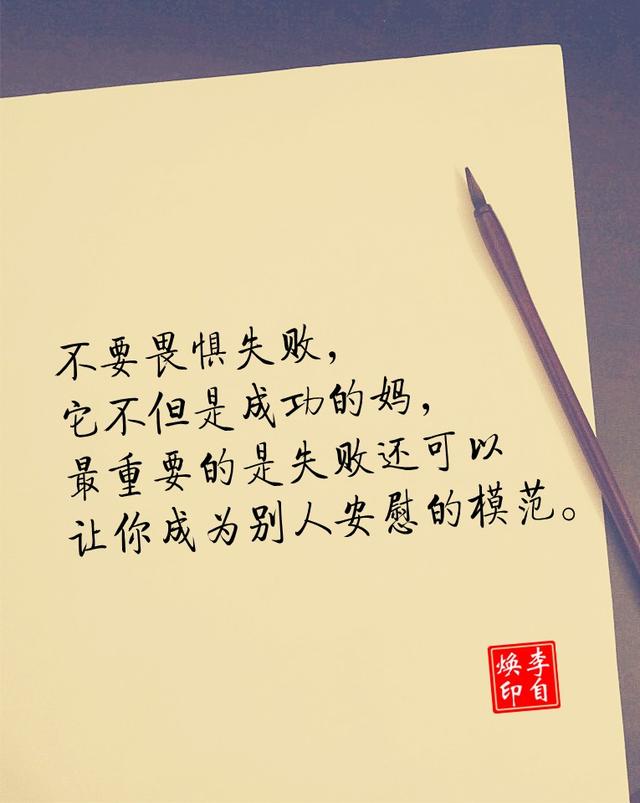 不要畏惧失败，
它不但是成功的妈，
最重要的是失败还可以
让你成为别人安慰的模范。
李自
焕印